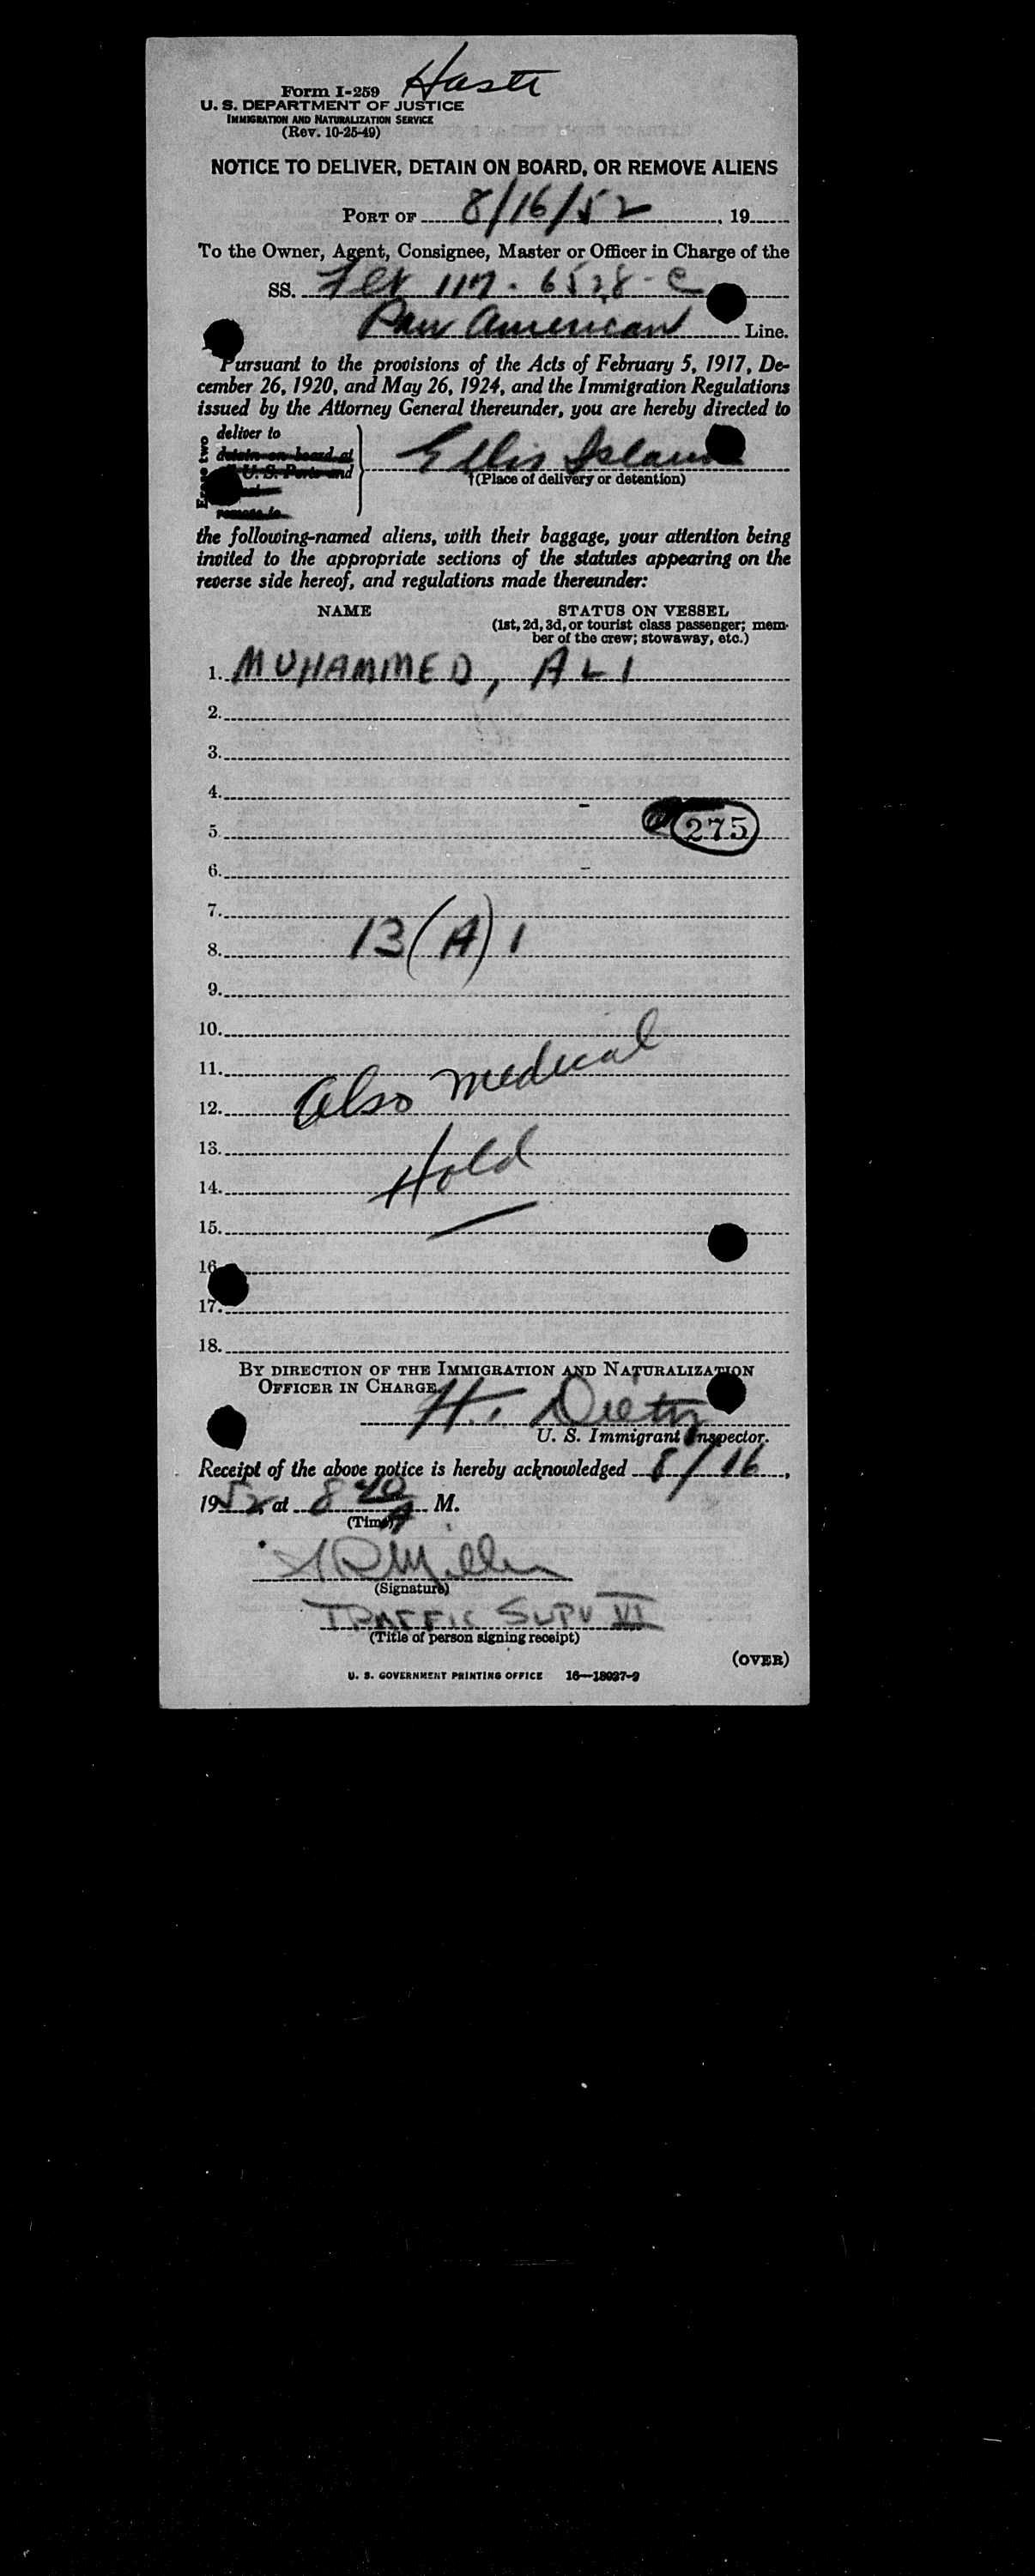 Form I-259
U. S. DEPARTMENT OF JUSTICE
IMMIGRATION AND NATURALIZATION SERVICE
(Rev. 10-25-49)
NOTICE TO DELIVER, DETAIN ON BOARD, OR REMOVE ALIENS
PORT OF 8/16/52, 19
To the Owner, Agent, Consignee, Master or Officer in Charge of the
SS. 117. 6528-C
Pan American Line.
Pursuant to the provisions of the Acts of February 5, 1917, De-
cember 26, 1920, and May 26, 1924, and the Immigration Regulations
issued by the Attorney General thereunder, you are hereby directed to
Erase two
deliver to
detain on board at
U. S. Ports and
remove to
Ellis Island
†(Place of delivery or detention)
the following-named aliens, with their baggage, your attention being
invited to the appropriate sections of the statutes appearing on the
reverse side hereof, and regulations made thereunder:
NAME STATUS ON VESSEL
(1st, 2d, 3d, or tourist class passenger; mem-
ber of the crew; stowaway, etc.)
1. MUHAMMED, ALI
2.
3.
4.
5. 275
6.
7.
8. 13(A)1
9.
10.
11.
12. Also medical
13.
14. Hold
15.
16.
17.
18.
BY DIRECTION OF THE IMMIGRATION AND NATURALIZATION
OFFICER IN CHARGE.
H. Dietz
U. S. Immigrant Inspector.
Receipt of the above notice is hereby acknowledged 8/16,
1952, at 8 40 A M.
(Time)
Miller
(Signature)
TRAFFIC SUPV VI
(Title of person signing receipt)
(OVER)
U. S. GOVERNMENT PRINTING OFFICE 16—18027-2